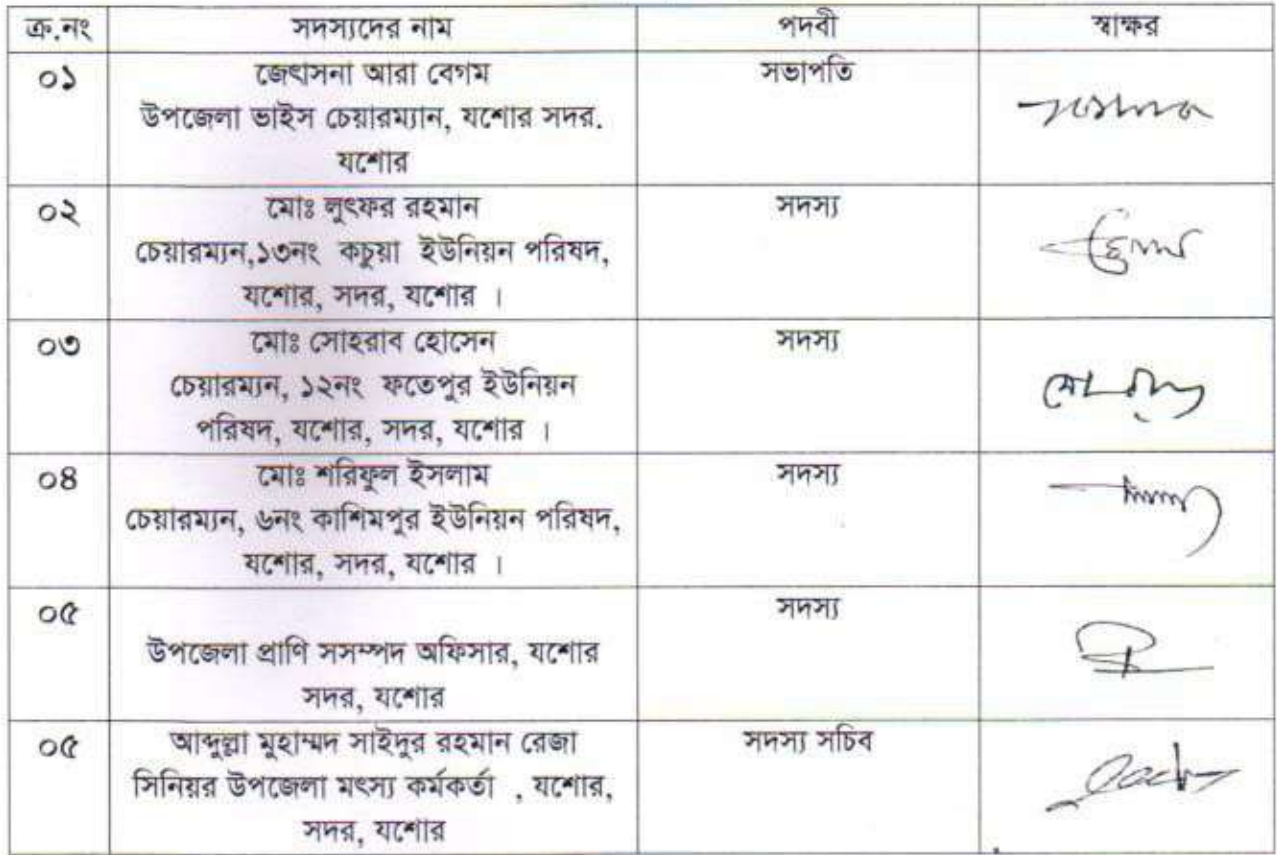 ক্র.নং সদস্যদের নাম পদবী স্বাক্ষর
০১ জেৎাসনা আরা বেগম সভাপতি
উপজেলা ভাইস চেয়ারম্যান, যশোর সদর.
যশোর
০২ মোঃ লুৎফর রহমান সদস্য
চেয়ারম্যন,১৩নং কচুয়া ইউনিয়ন পরিষদ,
যশোর, সদর, যশোর ।
০৩ মোঃ সোহরাব হোসেন সদস্য
চেয়ারম্যন, ১২নং ফতেপুর ইউনিয়ন
পরিষদ, যশোর, সদর, যশোর ।
০৪ মোঃ শরিফুল ইসলাম সদস্য
চেয়ারম্যন, ৬নং কাশিমপুর ইউনিয়ন পরিষদ,
যশোর, সদর, যশোর ।
০৫ সদস্য
উপজেলা প্রাণি সসম্পদ অফিসার, যশোর
সদর, যশোর
০৫ আব্দুল্লা মুহাম্মদ সাইদুর রহমান রেজা সদস্য সচিব
সিনিয়র উপজেলা মৎস্য কর্মকর্তা , যশোর,
সদর, যশোর